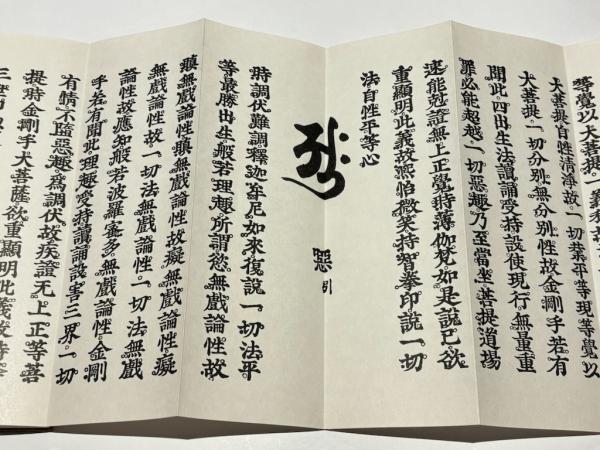 等覺以大菩提一義
大菩提自性清淨故一切業平等現等覺以
大菩提一切分別無分別性故金剛手若有
聞此四出生法讀誦受持設使現行無量重
罪必能超越一切惡趣乃至當坐菩提道場
速能剋證無上正覺時薄伽梵如是說已欲
重顯明此義故熙怡微笑持智拳印說一切
法自性平等心
惡引
時調伏難調釋迦牟尼如來復說一切法平
等最勝出生般若理趣所謂欲無戲論性故
瞋無戲論性瞋無戲論性故癡無戲論性癡
無戲論性故一切法無戲論性一切法無戲
論性故應知般若波羅蜜多無戲論性金剛
手若有聞此理趣受持讀誦設害三界一切
有情不墮惡趣為調伏故疾證无上正等菩
提時金剛手大菩薩欲重顯明此義故持
三世印